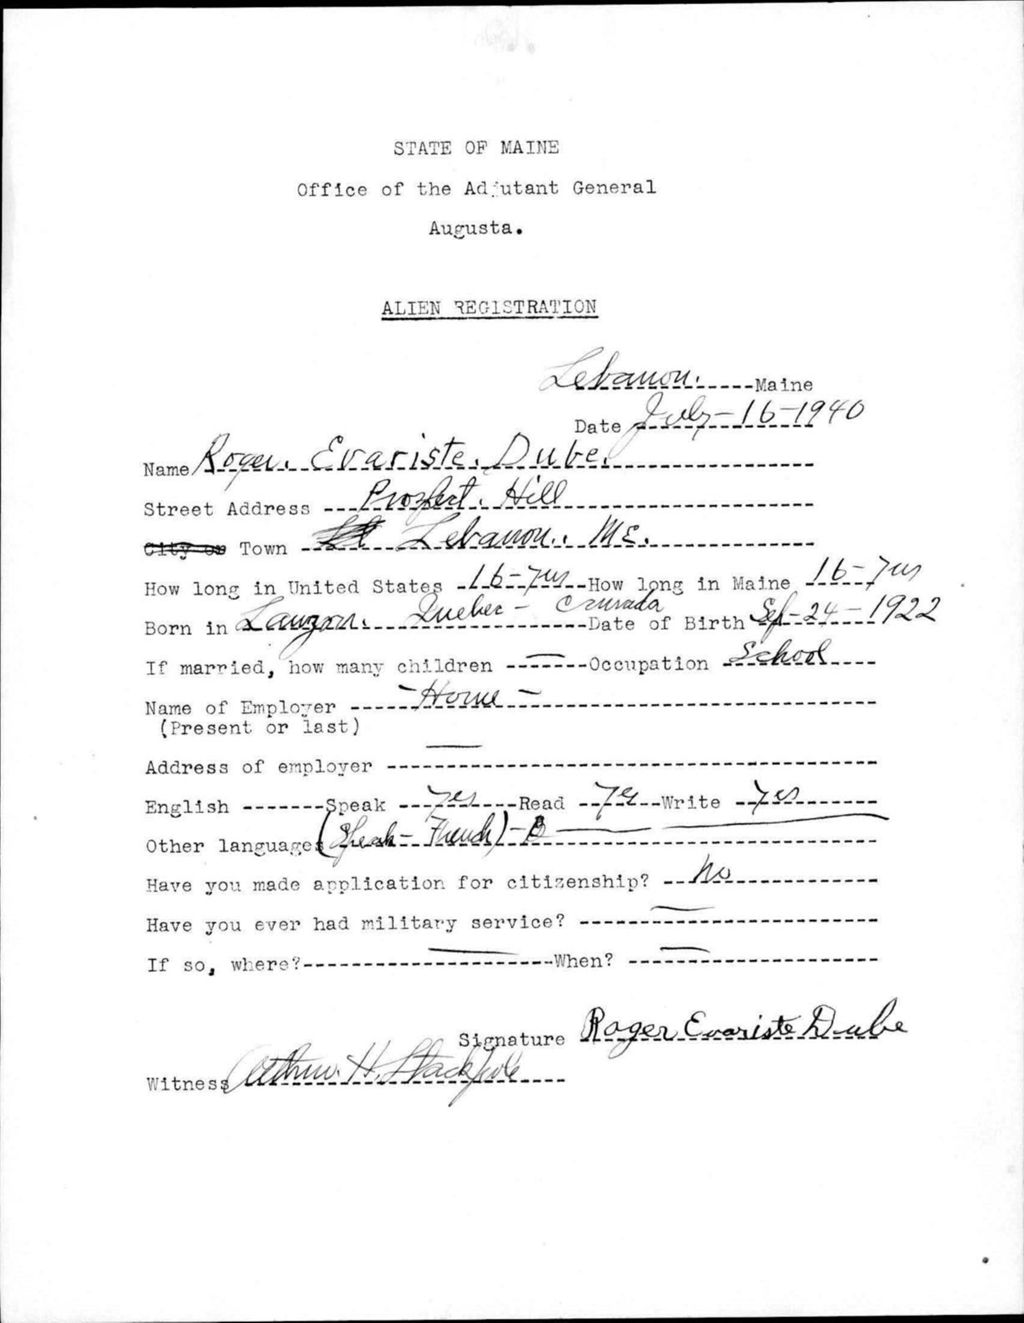 STATE OF MAINE
Office of the Adjutant General
Augusta.
ALIEN REGISTRATION
Lebanon. Maine
Date July-16-1940
Name Roger. Evariste. Dube.
Street Address Prospect. Hill
City or Town Lebanon. Me.
How long in United States 16-yrs How long in Maine 16-yrs
Born in Lauzon. Quebec - Canada Date of Birth Sep-24-1922
If married, how many children — Occupation School
Name of Employer - Home -
(Present or last)
Address of employer —
English Speak yes Read yes Write yes
Other languages (Speak - French) -
Have you made application for citizenship? No
Have you ever had military service? —
If so, where? — When? —
Signature Roger Evariste Dube
Witness Arthur H. Stackpole